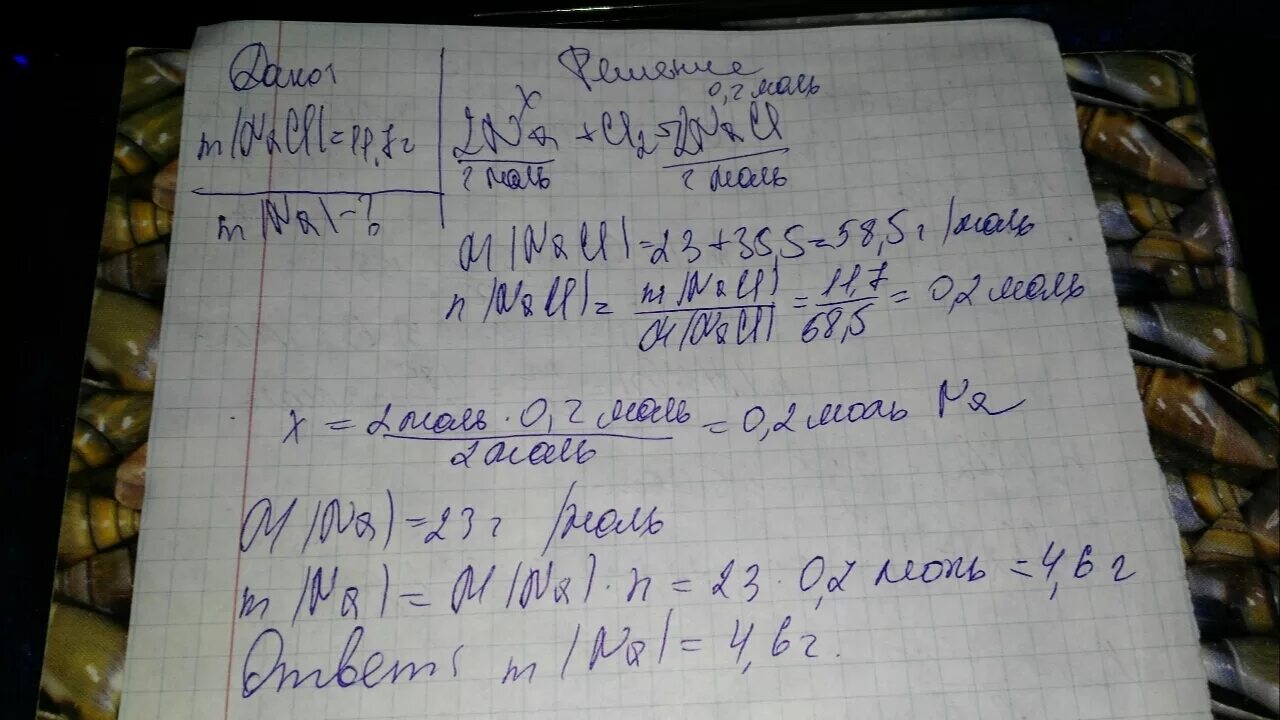 Дано:
m(NaCl)=11,7г
m(Na)-?
Решение
x 0,2 моль
2Na + Cl2 = 2NaCl
2 моль 2 моль
M(NaCl)=23+35,5=58,5г/моль
n(NaCl)= m(NaCl)/M(NaCl) = 11,7/58,5 = 0,2 моль
x = 2 моль · 0,2 моль/2 моль = 0,2 моль Na
M(Na)=23г /моль
m(Na)= M(Na)·n = 23 · 0,2 моль = 4,6 г
Ответ: m(Na)= 4,6г.